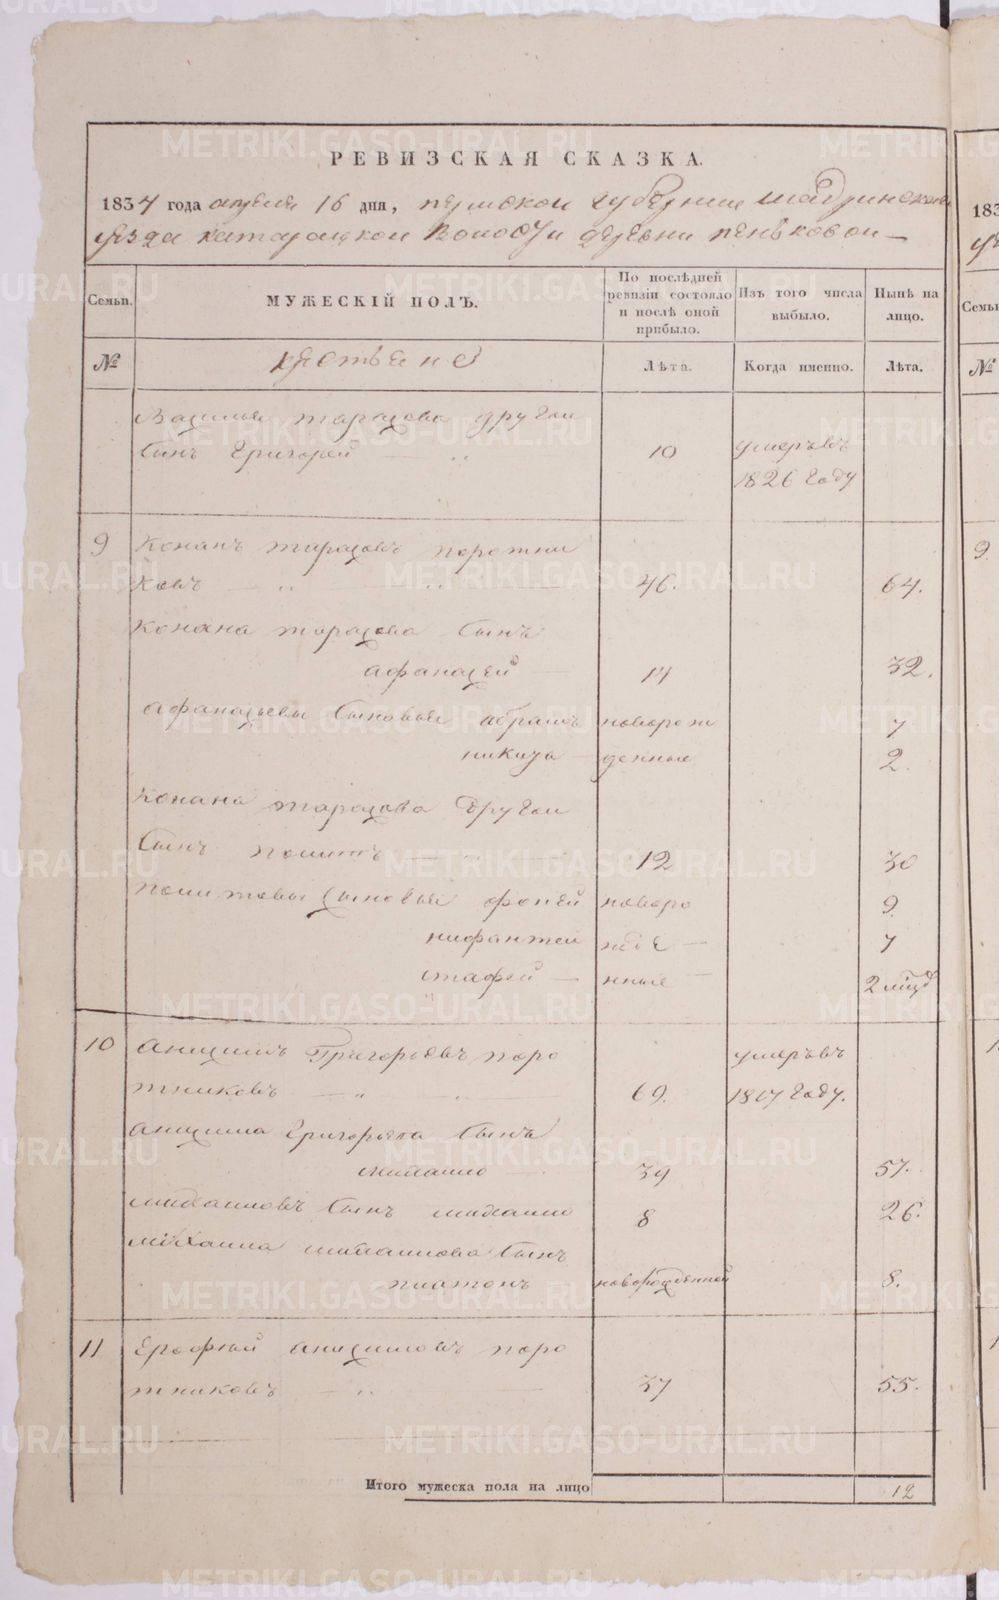 РЕВИЗСКАЯ СКАЗКА.
1834 года апреля 16 дня, пермской губернии шадринскаго
уезда катарацкой волости деревни пеньковой
Семьи. МУЖЕСКІЙ ПОЛЪ. По послѣдней ревизіи состояло и послѣ оной прибыло. Изъ того числа выбыло. Нынѣ на лицо.
№ крестьяне Лѣта. Когда именно. Лѣта.
Василья тарасова другой
сынъ Григорей 10 умеръ въ
1826 году
9 Конанъ тарасовъ поротни
ковъ 46. 64.
Конана тарасова сынъ
афанасей 14 32.
афанасьевы сыновья абрамъ новорож 7
никита денные 2.
Конана тарасова другой
сынъ политъ 12 30
политовы сыновья фотей новоро 9
нифантей жде 7
стафей нные 2
10 анисимъ Григорьевъ поро умеръ въ
тниковъ 69. 1817 году.
анисима Григорьева сынъ
михаило 39 57.
михаиловъ сынъ михаило 8 26.
михаила михаилова сынъ
платонъ новорожденной 8.
11 Ерофтей анисимовъ поро
тниковъ 37 55.
Итого мужеска пола на лицо 12
METRIKI.GASO-URAL.RU